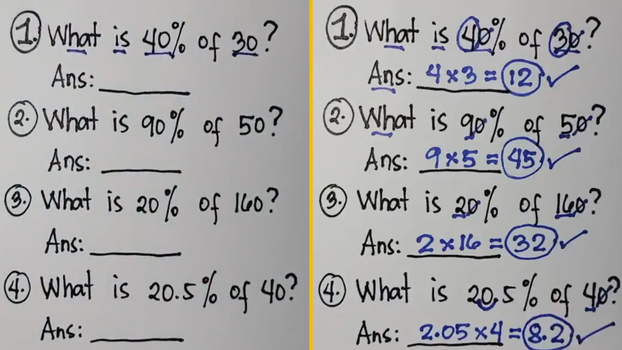 1. What is 40% of 30?
Ans: ________
2. What is 90% of 50?
Ans: ________
3. What is 20% of 160?
Ans: ________
4. What is 20.5% of 40?
Ans: ________
1. What is 40% of 30?
Ans: 4 x 3 = 12 ✓
2. What is 90% of 50?
Ans: 9 x 5 = 45 ✓
3. What is 20% of 160?
Ans: 2 x 16 = 32 ✓
4. What is 20.5% of 40?
Ans: 2.05 x 4 = 8.2 ✓